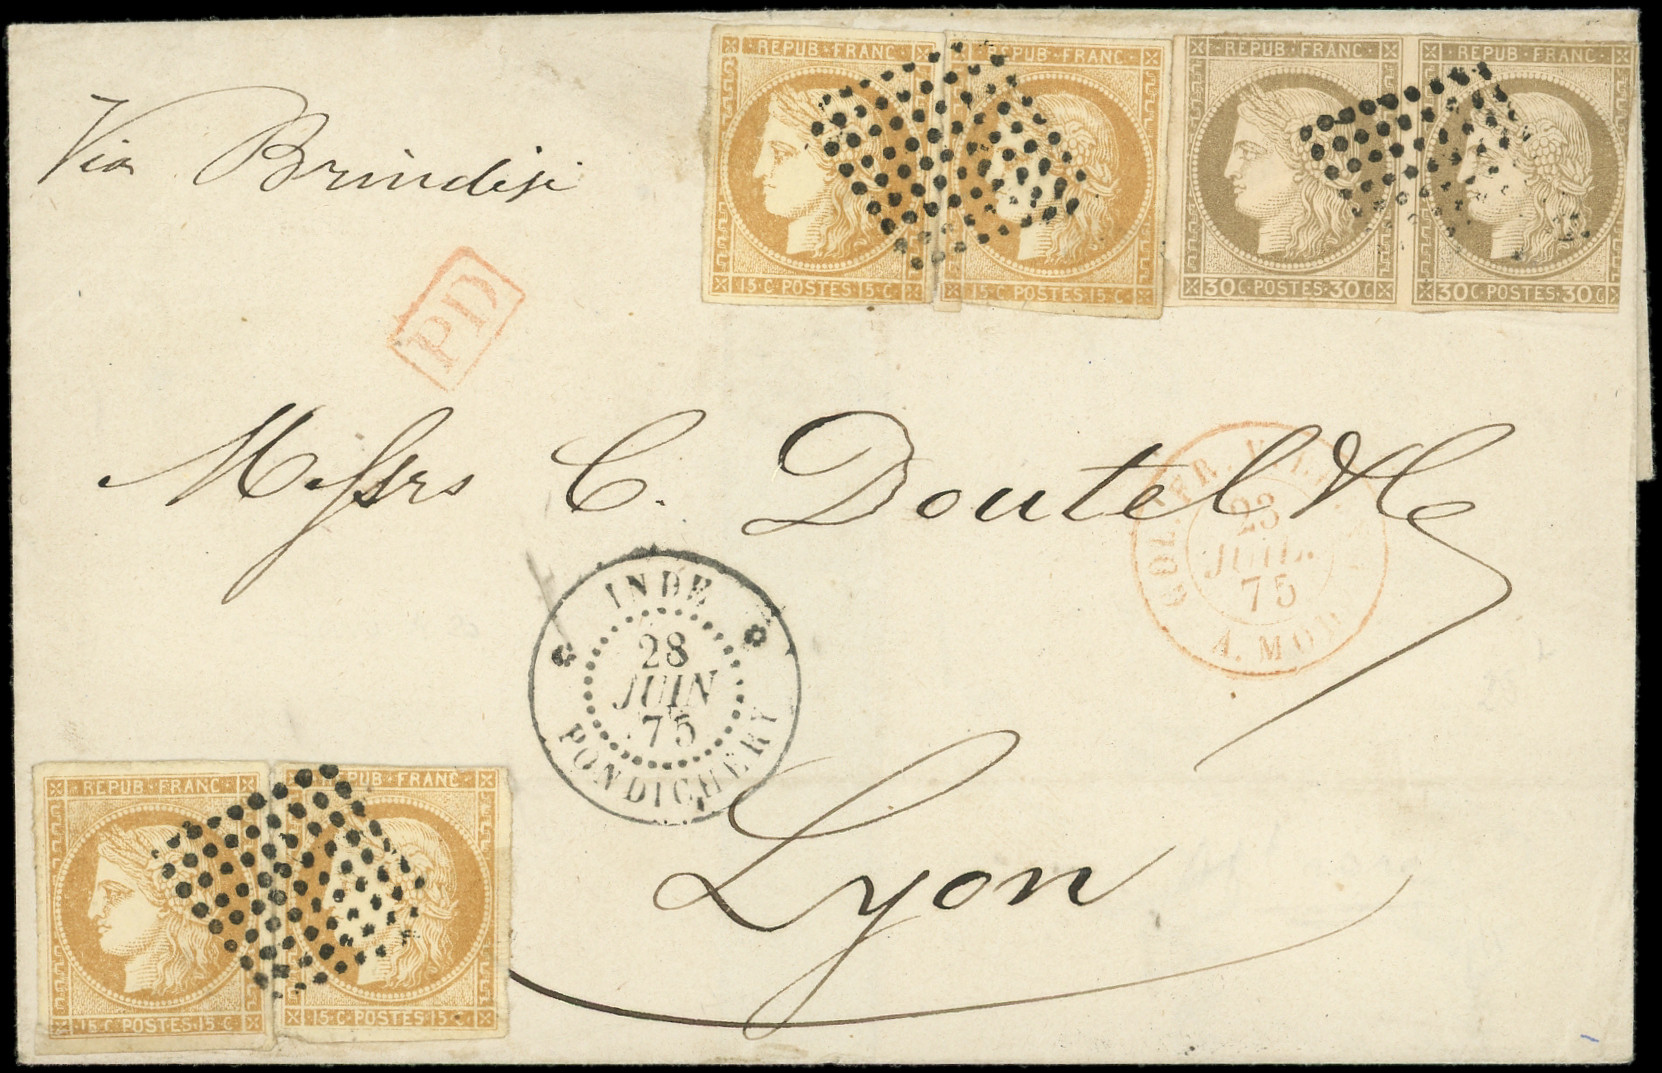 REPUB·FRANC
15·C·POSTES·15·C
REPUB·FRANC
15·C·POSTES·15·C
REPUB·FRANC
30C·POSTES·30C
REPUB·FRANC
30C·POSTES·30C
Via Brindisi
PD
Messrs C. Doutel
COL. FR. V.
23
JUIL.
75
A. MOD
INDE
28
JUIN
75
PONDICHERY
Lyon
REPUB·FRANC
15·C·POSTES·15·C
PUB·FRANC
15·C·POSTES·15·C